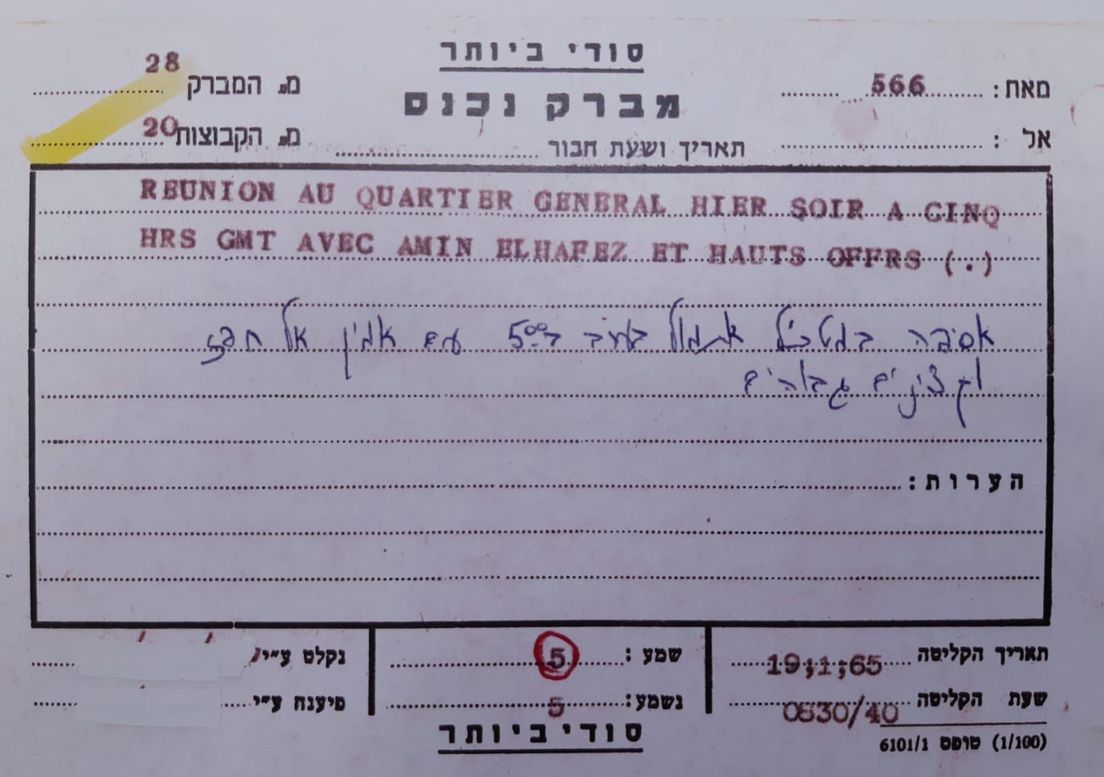 סודי ביותר
מאת: 566 מברק נכנס מס. המברק 28
אל : תאריך ושעת חבור מס. הקבוצות 20
REUNION AU QUARTIER GENERAL HIER SOIR A CINQ
HRS GMT AVEC AMIN ELHAFEZ ET HAUTS OFFRS (.)
אסיפה במטכ"ל אתמול בערב ב־5:00 עם אמין אל חפז
וקצינים גבוהים
הערות:
תאריך הקליטה 19;1;65 שמע : 5 נקלט ע"י
שעת הקליטה 0830/40 נשמע: 5 פיענח ע"י
סודי ביותר
(1/100) טופס 6101/1